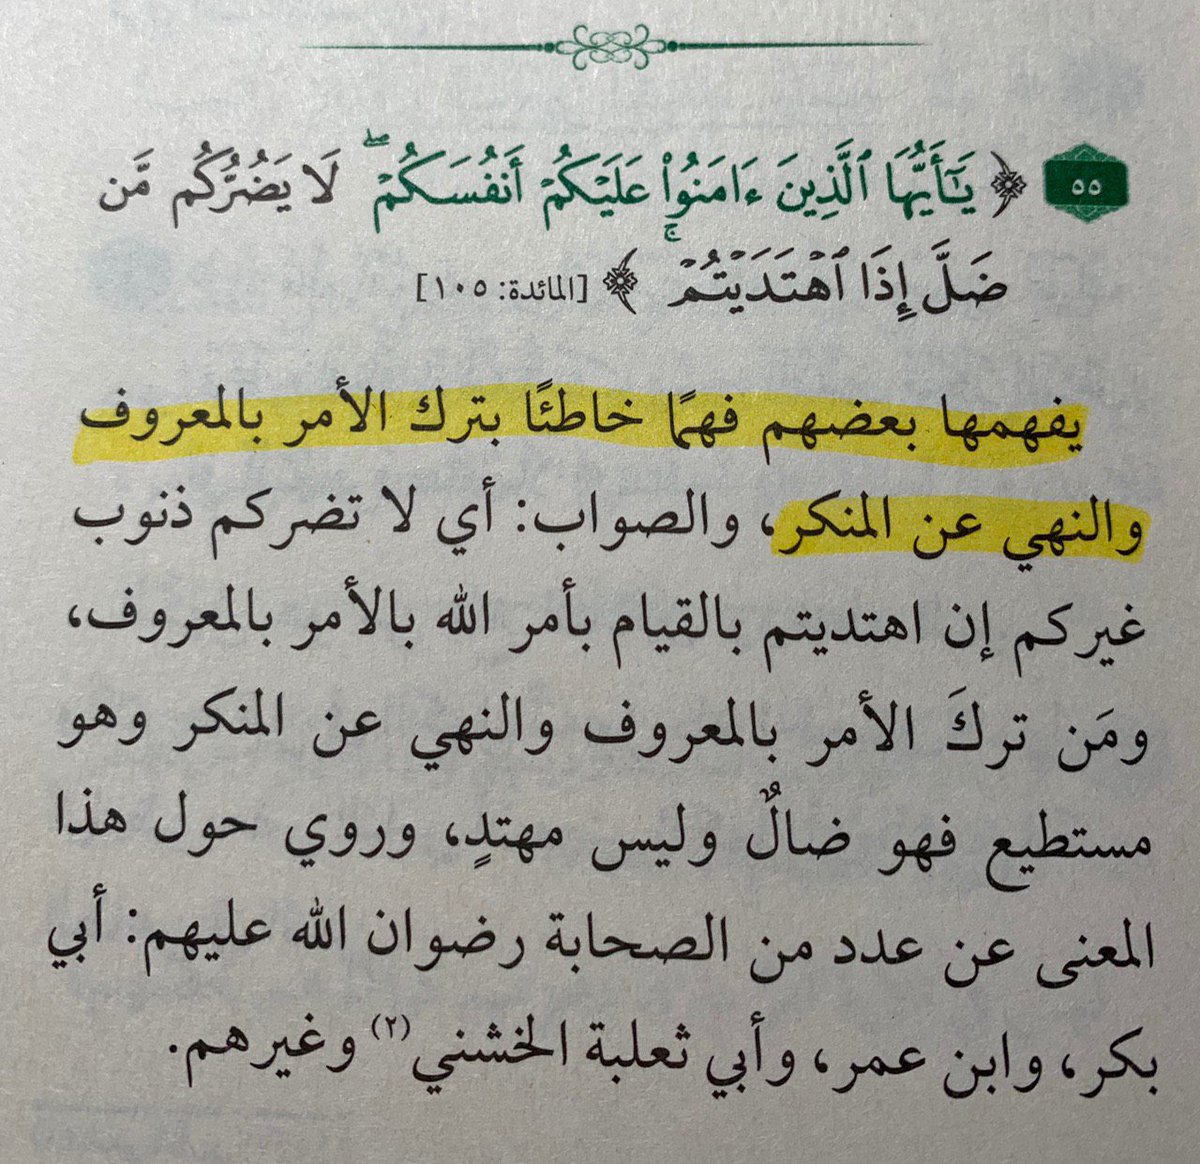 ٥٥ ﴿ يَٰٓأَيُّهَا ٱلَّذِينَ ءَامَنُوا۟ عَلَيۡكُمۡ أَنفُسَكُمۡۖ لَا يَضُرُّكُم مَّن
ضَلَّ إِذَا ٱهۡتَدَيۡتُمۡۚ ﴾ [المائدة: ١٠٥]
يفهمها بعضهم فهمًا خاطئًا بترك الأمر بالمعروف
والنهي عن المنكر، والصواب: أي لا تضركم ذنوب
غيركم إن اهتديتم بالقيام بأمر الله بالأمر بالمعروف،
ومَن تركَ الأمر بالمعروف والنهي عن المنكر وهو
مستطيع فهو ضالٌ وليس مهتدٍ، وروي حول هذا
المعنى عن عدد من الصحابة رضوان الله عليهم: أبي
بكر، وابن عمر، وأبي ثعلبة الخشني(٢) وغيرهم.